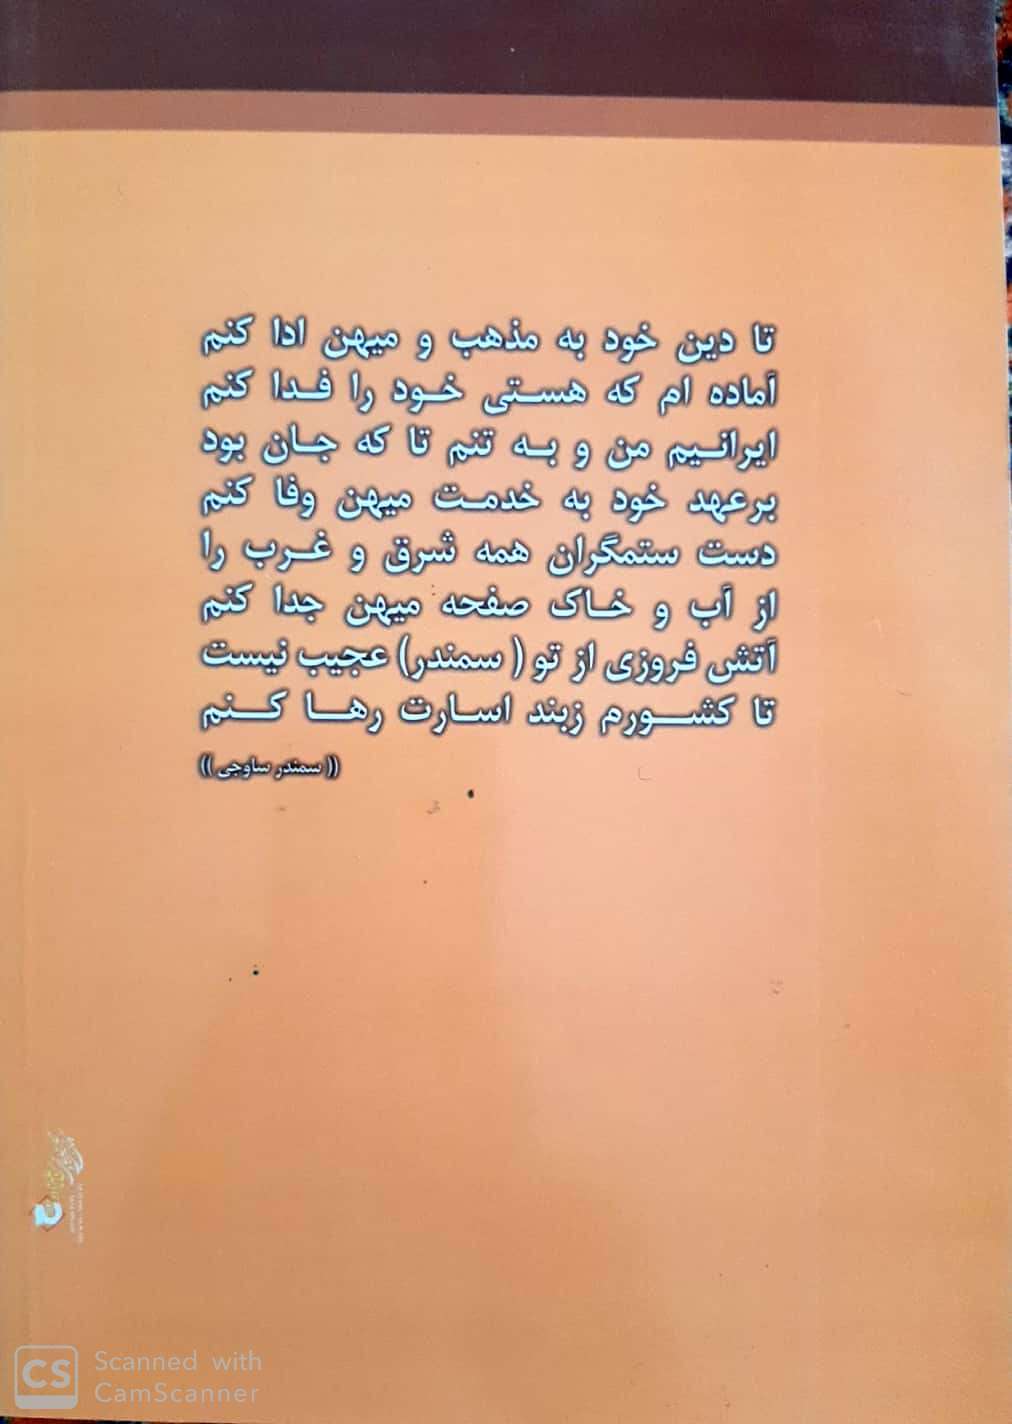 تا دین خود به مذهب و میهن ادا کنم
آماده ام که هستی خود را فدا کنم
ایرانیم من و به تنم تا که جان بود
برعهد خود به خدمت میهن وفا کنم
دست ستمگران همه شرق و غرب را
از آب و خاک صفحه میهن جدا کنم
آتش فروزی از تو ( سمندر) عجیب نیست
تا کشورم زبند اسارت رها کنم
(( سمندر ساوجی ))
CS Scanned with
CamScanner